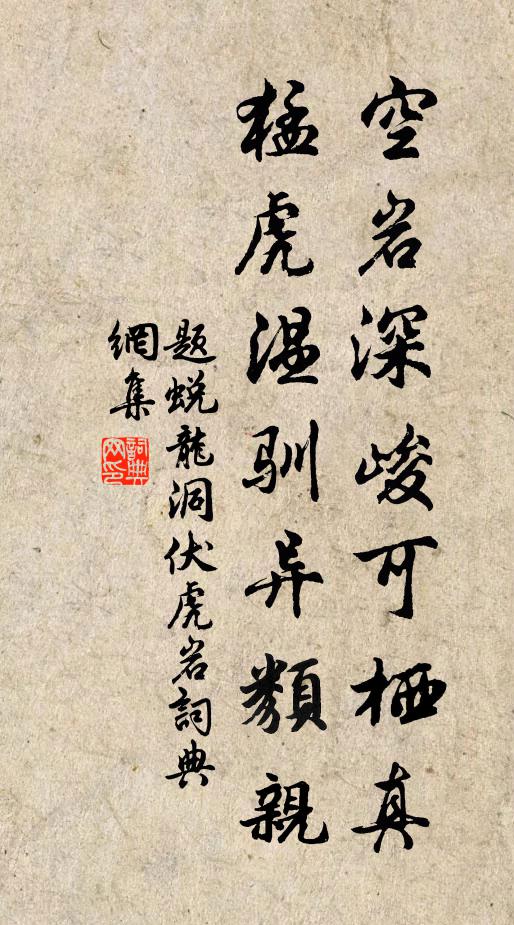 空岩深峻可栖真
猛虎温驯异類親
题蜕龍洞伏虎岩詞典
網集
詞典
网印